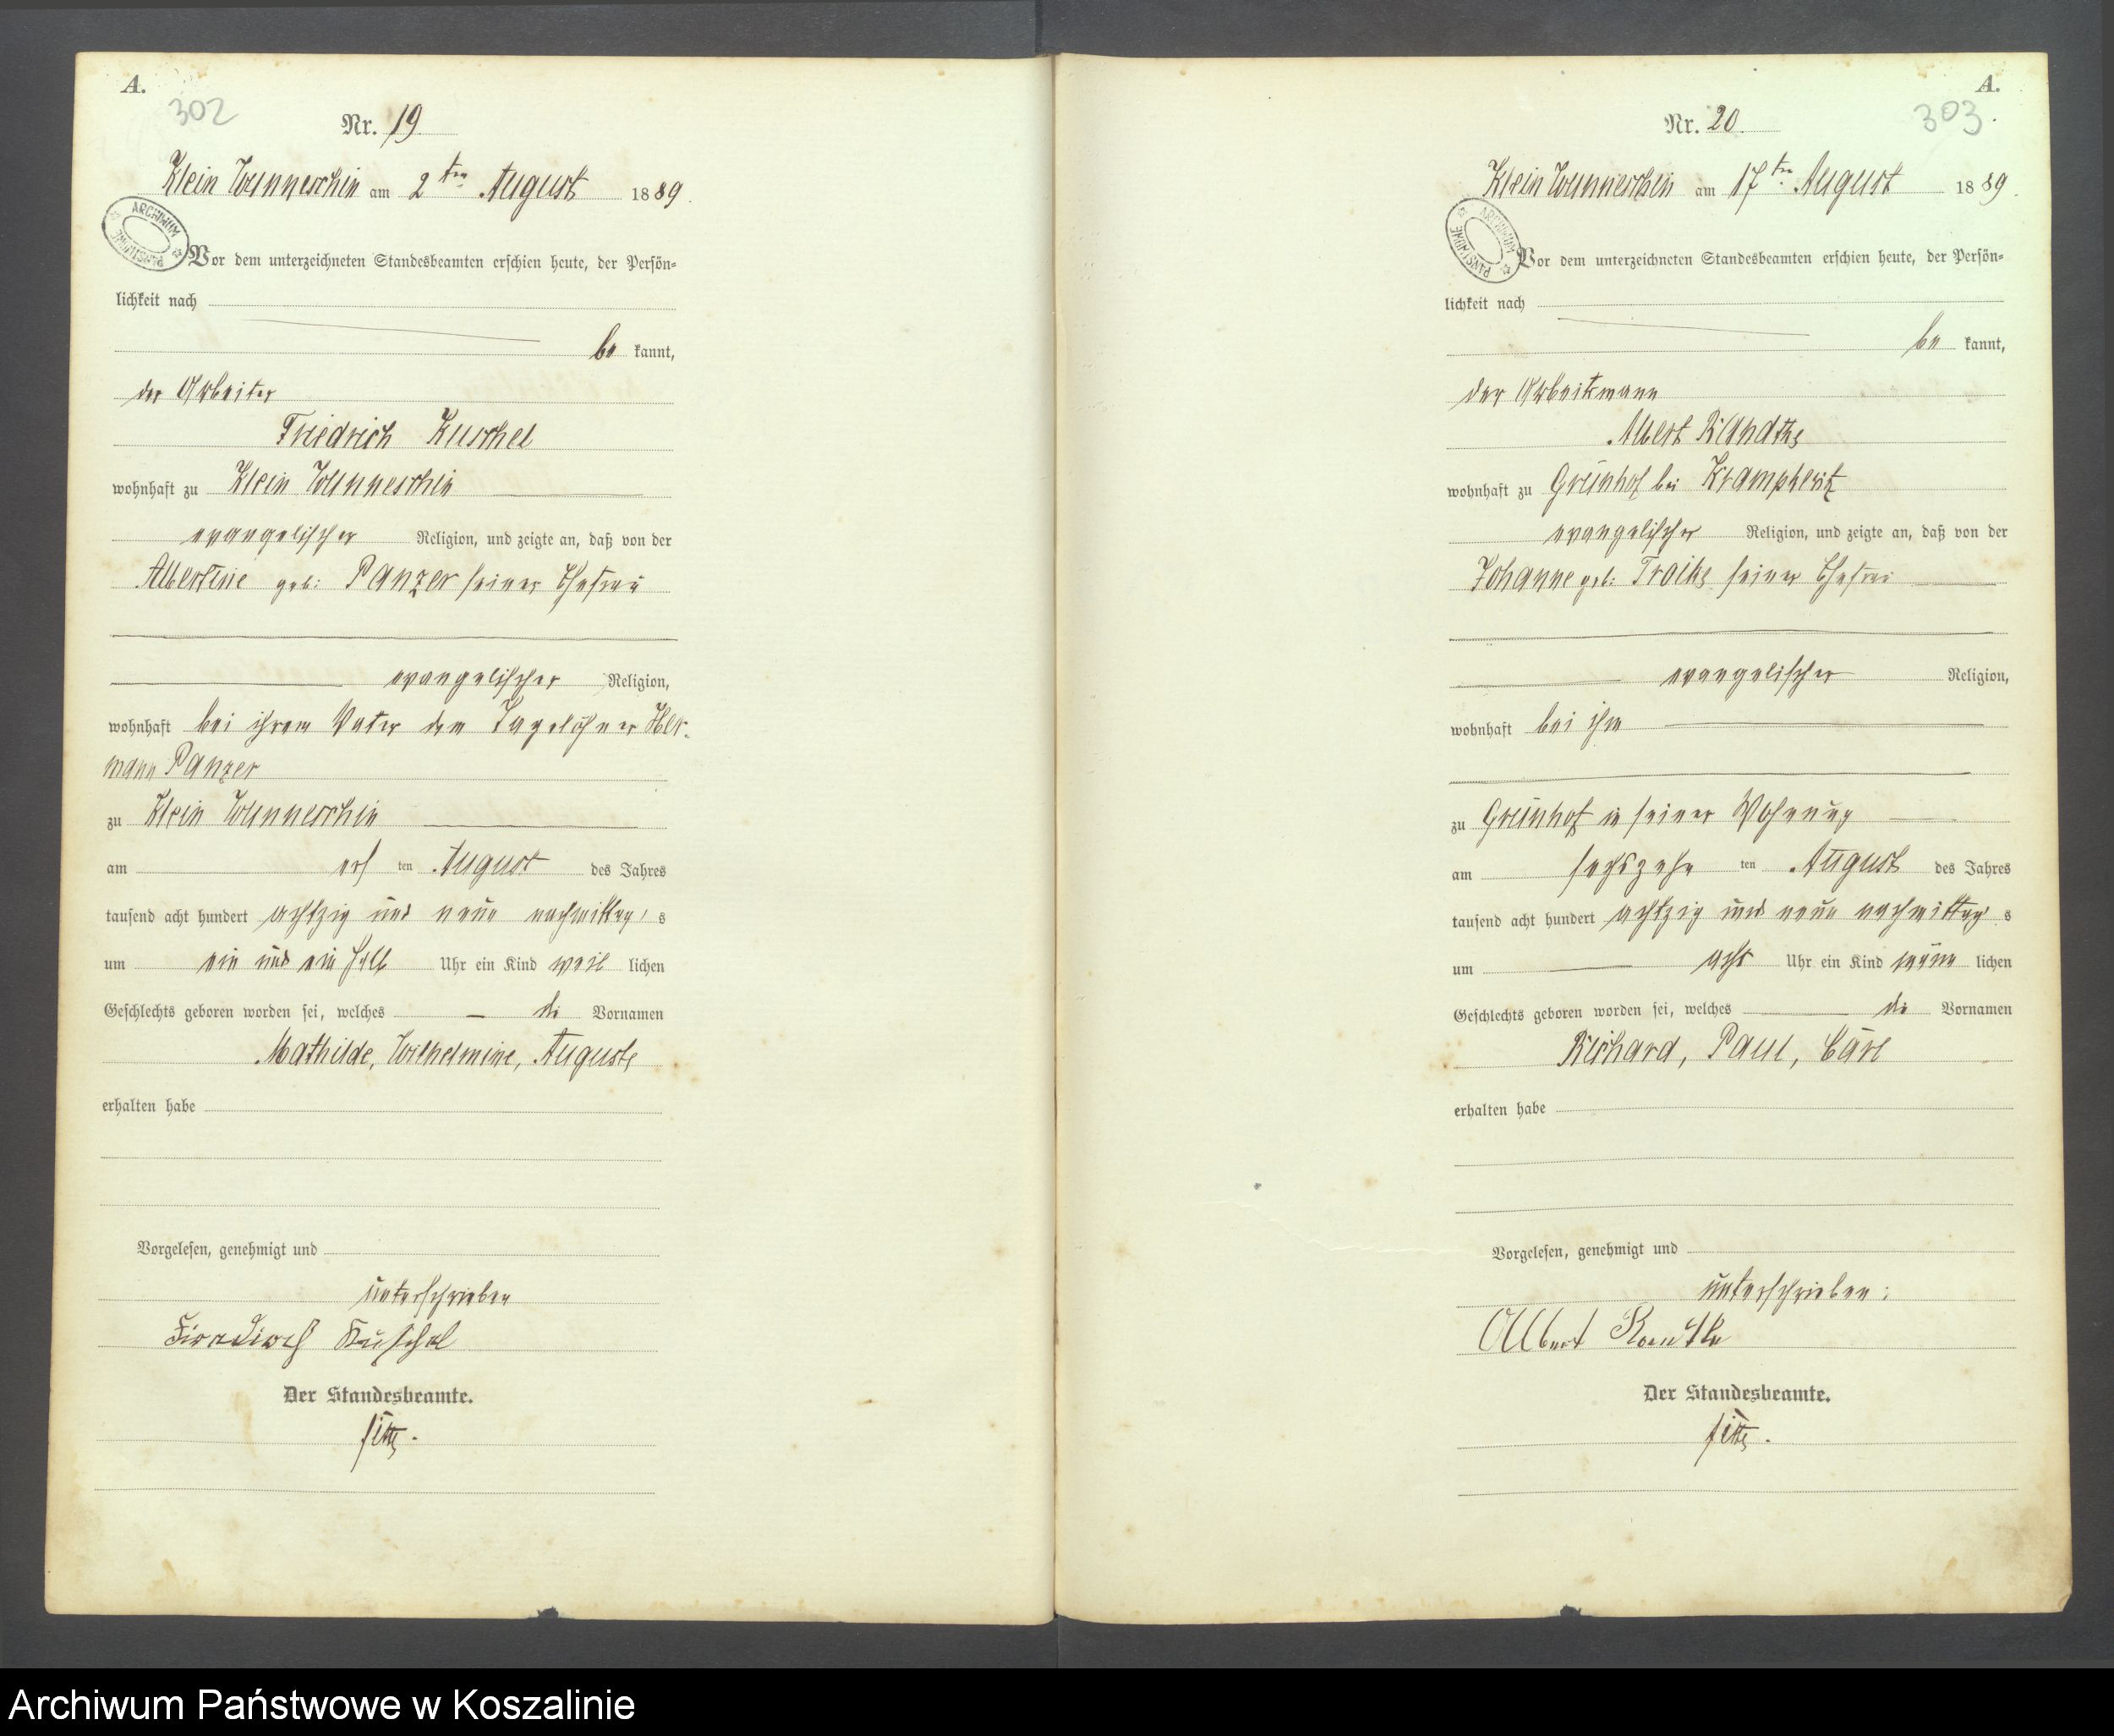 A.
302
Nr. 19
Klein Wunneschin am 2ten August 1889.
ARCHIWUM PAŃSTWOWE
Vor dem unterzeichneten Standesbeamten erschien heute, der Persön-
lichkeit nach
be kannt,
der Arbeiter
Friedrich Kuschel
wohnhaft zu Klein Wunneschin
evangelischer Religion, und zeigte an, daß von der
Albertine geb: Panzer seiner Ehefrau
evangelischer Religion,
wohnhaft bei ihrem Vater dem Tagelöhner Her-
mann Panzer
zu Klein Wunneschin
am ers ten August des Jahres
tausend acht hundert achtzig und neun nachmittag s
um ein und ein halb Uhr ein Kind weib lichen
Geschlechts geboren worden sei, welches die Vornamen
Mathilde, Wilhelmine, Auguste
erhalten habe
Vorgelesen, genehmigt und
unterschrieben
Friedrich Kuschel
Der Standesbeamte.
A.
303
Nr. 20.
Klein Wunneschin am 17ten August 1889.
ARCHIWUM PAŃSTWOWE
Vor dem unterzeichneten Standesbeamten erschien heute, der Persön-
lichkeit nach
be kannt,
der Arbeitsmann
Albert
wohnhaft zu Grünhof bei Krampkewitz
evangelischer Religion, und zeigte an, daß von der
Johanne geb: seiner Ehefrau
evangelischer Religion,
wohnhaft bei ihm
zu Grünhof in seiner Wohnung
am sechszehn ten August des Jahres
tausend acht hundert achtzig und neun nachmittag s
um acht Uhr ein Kind männ lichen
Geschlechts geboren worden sei, welches die Vornamen
Richard, Paul, Carl
erhalten habe
Vorgelesen, genehmigt und
unterschrieben:
Albert
Der Standesbeamte.
Archiwum Państwowe w Koszalinie